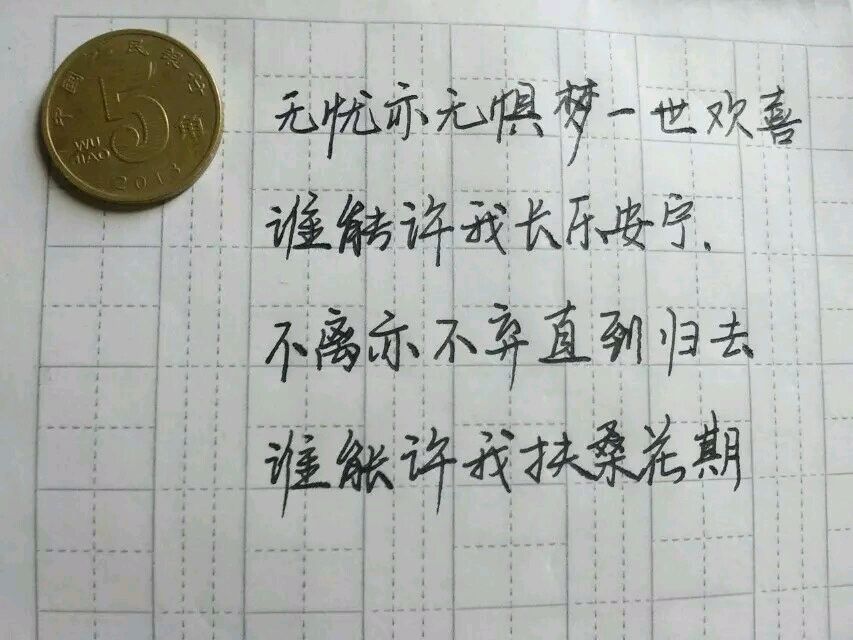 中国人民银行
5角
WU JIAO
2013
无忧亦无惧梦一世欢喜
谁能许我长乐安宁、
不离亦不弃直到归去、
谁能许我扶桑花期